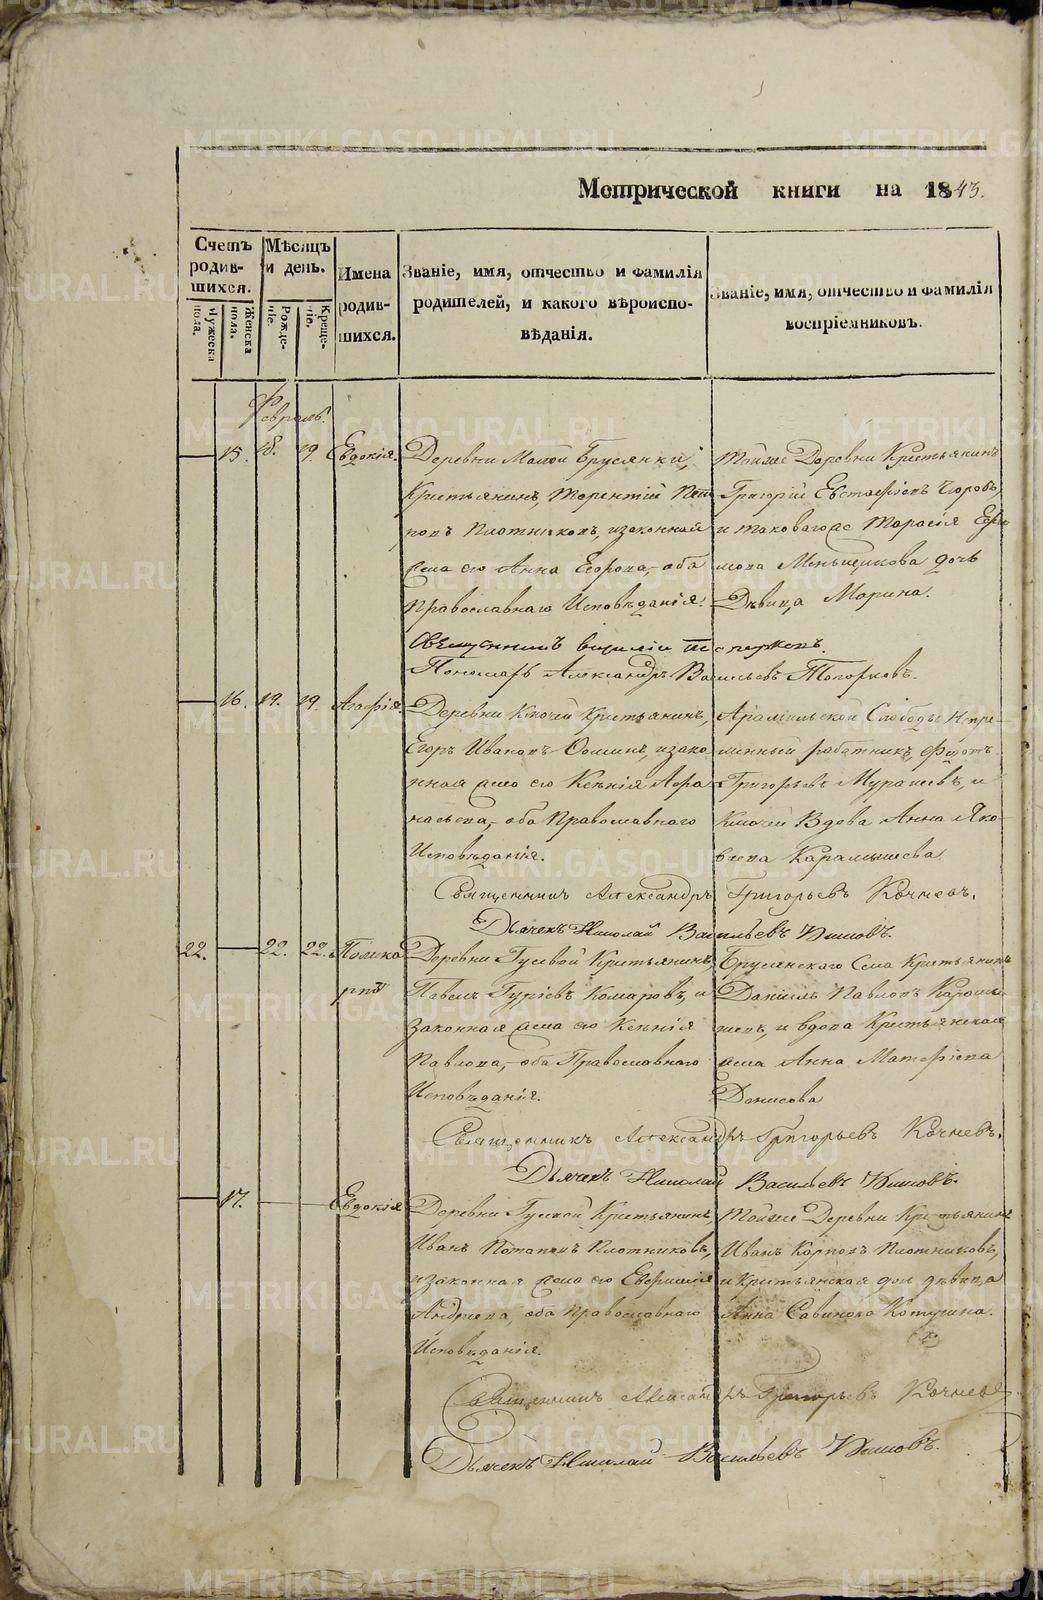 Метрической книги на 1843.
Счетъ родившихся.
Мѣсяцъ и день.
Имена родившихся.
Званіе, имя, отчество и фамилія родителей, и какого вѣроисповѣданія.
Званіе, имя, отчество и фамилія воспріемниковъ.
Мужеска пола.
Женска пола.
Рожденіе.
Крещеніе.
Февраль.
15. 18. 19. Евдокія.
Деревни Малой Брусянки,
Крестьянинъ, Терентій
Плотниковъ, и законная
жена его Анна Егорова, оба
Православнаго Исповѣданія.
Тойже Деревни Крестьянинъ
Григорій Евстафіевъ
и таковагоже Тарасія
Меньщикова дочь
Дѣвица Марина.
Пономарь Александръ Васильевъ Топорковъ.
16. 19. 19. Агафія.
Деревни Ключей Крестьянинъ,
Егоръ Ивановъ Фоминъ, и зако
нная жена его Ксенія Афа
насьева, оба Православнаго
Исповѣданія.
Арамильской Слободы Непре-
мѣнный работникъ, Филатъ
Григорьевъ Муралевъ, и
Ключей Вдова Анна Яко-
влева Карамышева
Священникъ Александръ Григорьевъ Кочневъ.
Дьячекъ Николай Васильевъ
22. 22. 22. Полика
рпъ
Деревни Гусевой Крестьянинъ,
Павелъ Гуріевъ Комаровъ, и
законная жена его Ксенія
Павлова, оба Православнаго
Исповѣданія.
Брусянскаго Села Крестьянинъ
Даніилъ Павловъ
и вдова Крестьянская
жена Анна Матѳіева
Денисова
Священникъ Александръ Григорьевъ Кочневъ.
Дьячекъ Николай Васильевъ
17. Евдокія
Деревни Гусевой Крестьянинъ,
Иванъ Потаповъ Плотниковъ,
и законная жена его Евфимія
Андреева, оба Православнаго
Исповѣданія.
Тойже Деревни Крестьянинъ
Иванъ Карповъ Плотниковъ,
и Крестьянская дочь дѣвица
Анна Савинова
Священникъ Александръ Григорьевъ Кочневъ
Дьячекъ Николай Васильевъ
METRIKI.GASO-URAL.RU